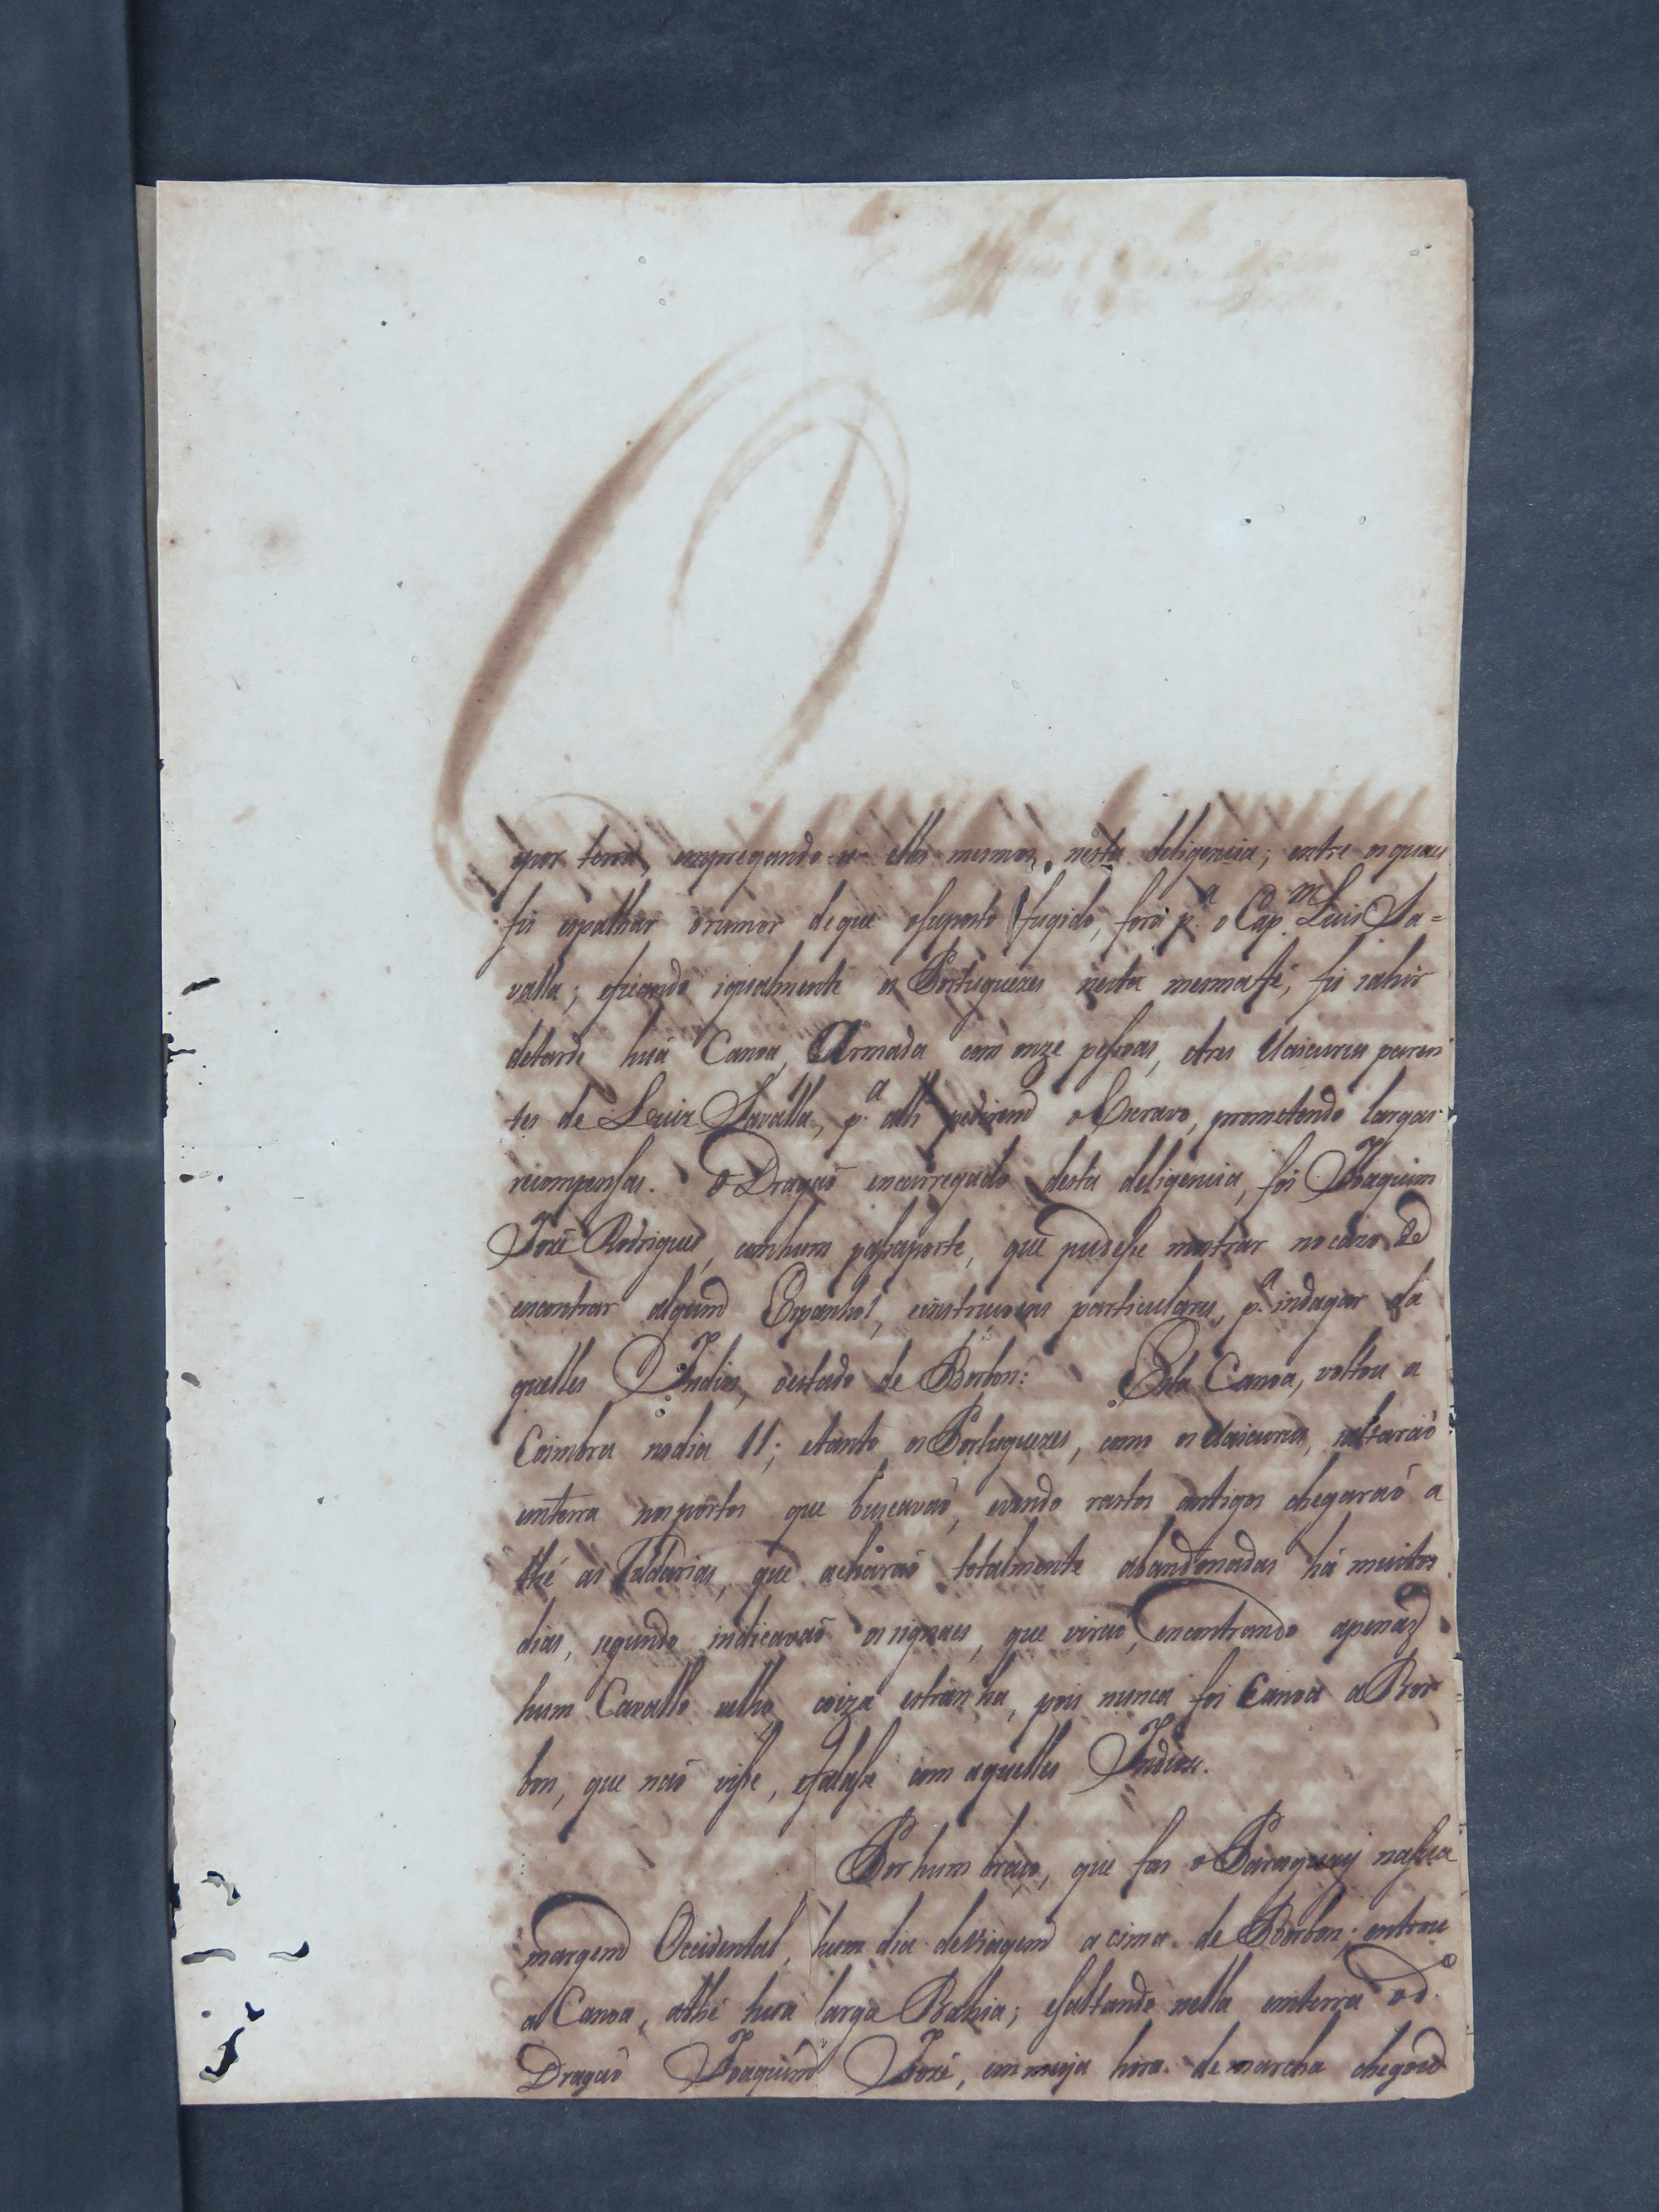 epor terra, empregando-a elles mesmos, nesta deligencia; entre os quaes
fis espalhar orumor deque osuposto fugido, fora p.ª o Cap.m Luis Sa=
valla; eficando igualmente os Portuguezes nesta mesmafé, fis sahir
detarde huã Canoa, Armada com onze pessoas, etres Uaicurus paren
tes de Luiz Savalla, p.ª alli pedirem o Escravo, prometendo largas
recompensas. O Dragaõ encarregado desta deligencia, foi Joaquim
José Rodrigues, comhum passaporte, que pudesse mostrar nocazo de
encontrar algum Espanhol, einstrucoens particulares, p.ª indagar da
quelles Indios, oestado de Borbon: Esta Canoa, voltou a
Coimbra nodia 11; etanto os Portuguezes, como os Uaicurus, saltaraõ
emterra nosportos que buscavaõ, evendo rastos antigos chegaraõ a
thé as Tuldarias, que acharaõ totalmente abandonadas há muitos
dias, segundo indicavaõ os signaes, que viraõ, encontrando apenas
hum Cavallo velho, coiza estranha, pois nunca foi Canoa a Bor=
bon, que naõ visse, efalasse com aquelles Indios.
Por hum braço, que fas o Paraguay nasua
margem Occidental, hum dia deviagem acima de Borbon; entrou
a Canoa, athé huã larga Bahia; esaltando nella emterra od.
Dragaõ Joaquim José, com meija hora de marcha chegou